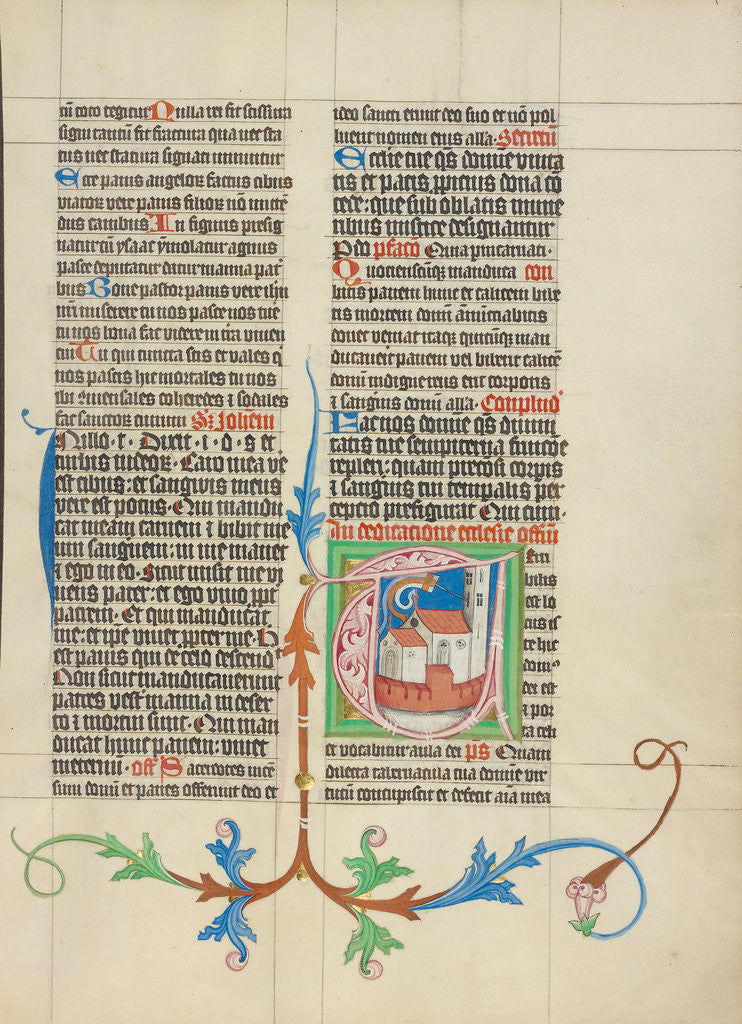 tū toto tegitur Nulla rei fit scissura
signi tantū fit fractura qua nec sta
tus nec statura signati minuitur
Ecce panis angeloꝝ factus cibus
viatoꝝ vere panis filioꝝ nō mittē
dus canibus In figuris presig
natur cū ysaac ymolatur agnus
pasce deputatur datur manna pat
bus Bone pastor panis vere ihū
nr̄i miserere tu nos pasce nos tue
tu nos bona fac videre in tr̄a viven
tiū Tu qui cuncta scis et vales q
nos pascis hic mortales tu nos
ibi ꝯmensales coheredes ⁊ sodales
fac sanctoꝝ civium Sꝫ Johēm
Nillo · t · Dixit · i · d · s et
turbis iudeoꝝ · Caro mea ve
est cibus : et sanguis meus
vere est potus · Qui mandu
cat meam carnem ⁊ bibit me
um sanguinem : in me manet
⁊ ego in eo · Sicut misit me vi
uens pater : et ego vivo ppt
patrem · Et qui manducat
me : et ipe vivet ppter me · h
est panis qui de celo descend
Non sicut manducaverunt
patres vest manna in deser
to ⁊ mortui sunt · Qui man
ducat hunc panem : vivet
in eternū · off Sacerdotes incē
sum domī et panes offerunt deo et
ideo sancti erunt deo suo et nō pol
luent nomen eius alla · Secretū
Ecclie tue qs domine unita
tis et pacis ppicius dona cō
cede : que sub oblatis mune
ribus mistice designantur
P d prefacō Quia p incarnati ·
Quotienscūqꝫ manduca com
bitis panem hunc et calicem bibe
tis mortem domī ānūciabitis
donec veniat itaqꝫ quicūqꝫ man
ducaverit panem vel biberit calicē
domī indigne reus erit corporis
⁊ sanguis domī alla · Conplnd
Fac nos domine qs divini
tatis tue sempiterna fruicōe
repleri : quam preciosi corpis
⁊ sanguis tui temporalis per
ceptio prefigurat Qui cum ·
In dedicatione ecclesie offm
Terri
bilis
est lo
cus is
te hic
dom⁹
dei est
⁊ por
ta celi
et vocabitur aula dei ps Quam
dilecta tabernacula tua domine vir
tutū concupiscit et defecit aīa mea